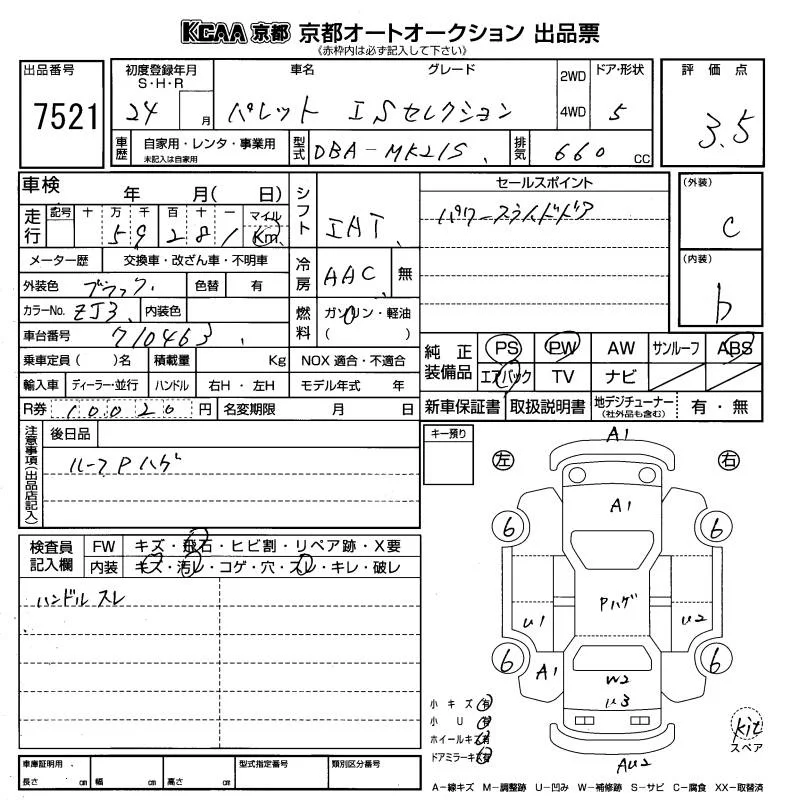 KCAA 京都 京都オートオークション 出品票
《赤枠内は必ず記入して下さい》
出品番号 7521
初度登録年月 S・H・R 24 月
車名 グレード パレット ISセレクション
2WD 4WD
ドア・形状 5
評価点 3.5
車歴 自家用・レンタ・事業用 未記入は自家用
型式 DBA-MK21S
排気 660 CC
車検 年 月( 日)
走行 記号 十 万 千 百 十 一 マイル Km
59281
メーター歴 交換車・改ざん車・不明車
外装色 ブラック 色替 有
カラーNo. ZJ3 内装色
車台番号 710463
乗車定員( )名 積載量 Kg
輸入車 ディーラー・並行 ハンドル 右H・左H
R券 10020 円 名変期限 月 日
シフト IAT
冷房 AAC 無
燃料 ガソリン・軽油 ( )
NOX 適合・不適合
モデル年式 年
セールスポイント
パワースライドドア
(外装) C
(内装) b
純正装備品 PS PW AW サンルーフ ABS
エアバック TV ナビ
新車保証書 取扱説明書 地デジチューナー (社外品も含む) 有・無
注意事項(出品店記入)
後日品
ルーフPハゲ
キー預り
検査員記入欄
FW キズ・飛石・ヒビ割・リペア跡・X要
内装 キズ・汚レ・コゲ・穴・スレ・キレ・破レ
ハンドルスレ
左 右
A1
A1
6 6
Pハゲ
U1 U2
6 6
A1
W2
U3
AU2
小キズ 有
小U 有
ホイールキズ 有
ドアミラーキズ 有
kit
スペア
車庫証明用 長さ cm 幅 cm 高さ cm
型式指定番号 類別区分番号
A-線キズ M-調整跡 U-凹み W-補修跡 S-サビ C-腐食 XX-取替済